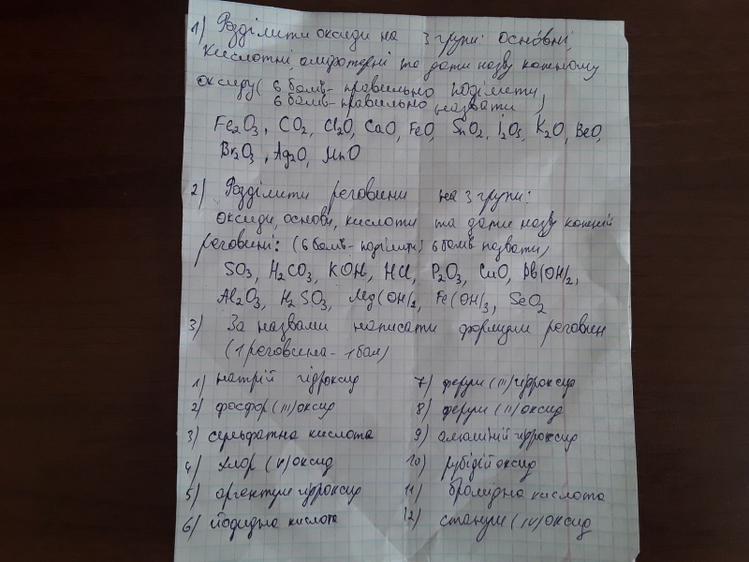 1) Розділити оксиди на 3 групи: осно́вні,
кислотні амфотерні та дати назву кожному
оксиду (6 балів- правильно поділити,
6 балів- правильно назвати)
Fe2O3, CO2, Cl2O, CaO, FeO, SnO2, I2O5, K2O, BeO,
Br2O3, Ag2O, MnO
2) Розділити реговини на 3 групи:
оксиди, основи, кислоти та дати назву кожній
реговині: (6 балів- поділити, 6 балів назвати)
SO3, H2CO3, KOH, HCl, P2O3, CuO, Pb(OH)2,
Al2O3, H2SO3, Mg(OH)2, Fe(OH)3, SeO2
3) За назвами написати формули реговин
(1 реговина - 1 бал)
1) натрій гідроксид
2) фосфор (III) оксид
3) сульфатна кислота
4) хлор (V) оксид
5) аргентум гідроксид
6) йодидна кислота
7) ферум (III) гідроксид
8) ферум (II) оксид
9) алюміній гідроксид
10) рубідій оксид
11) бромідна кислота
12) станум (IV) оксид